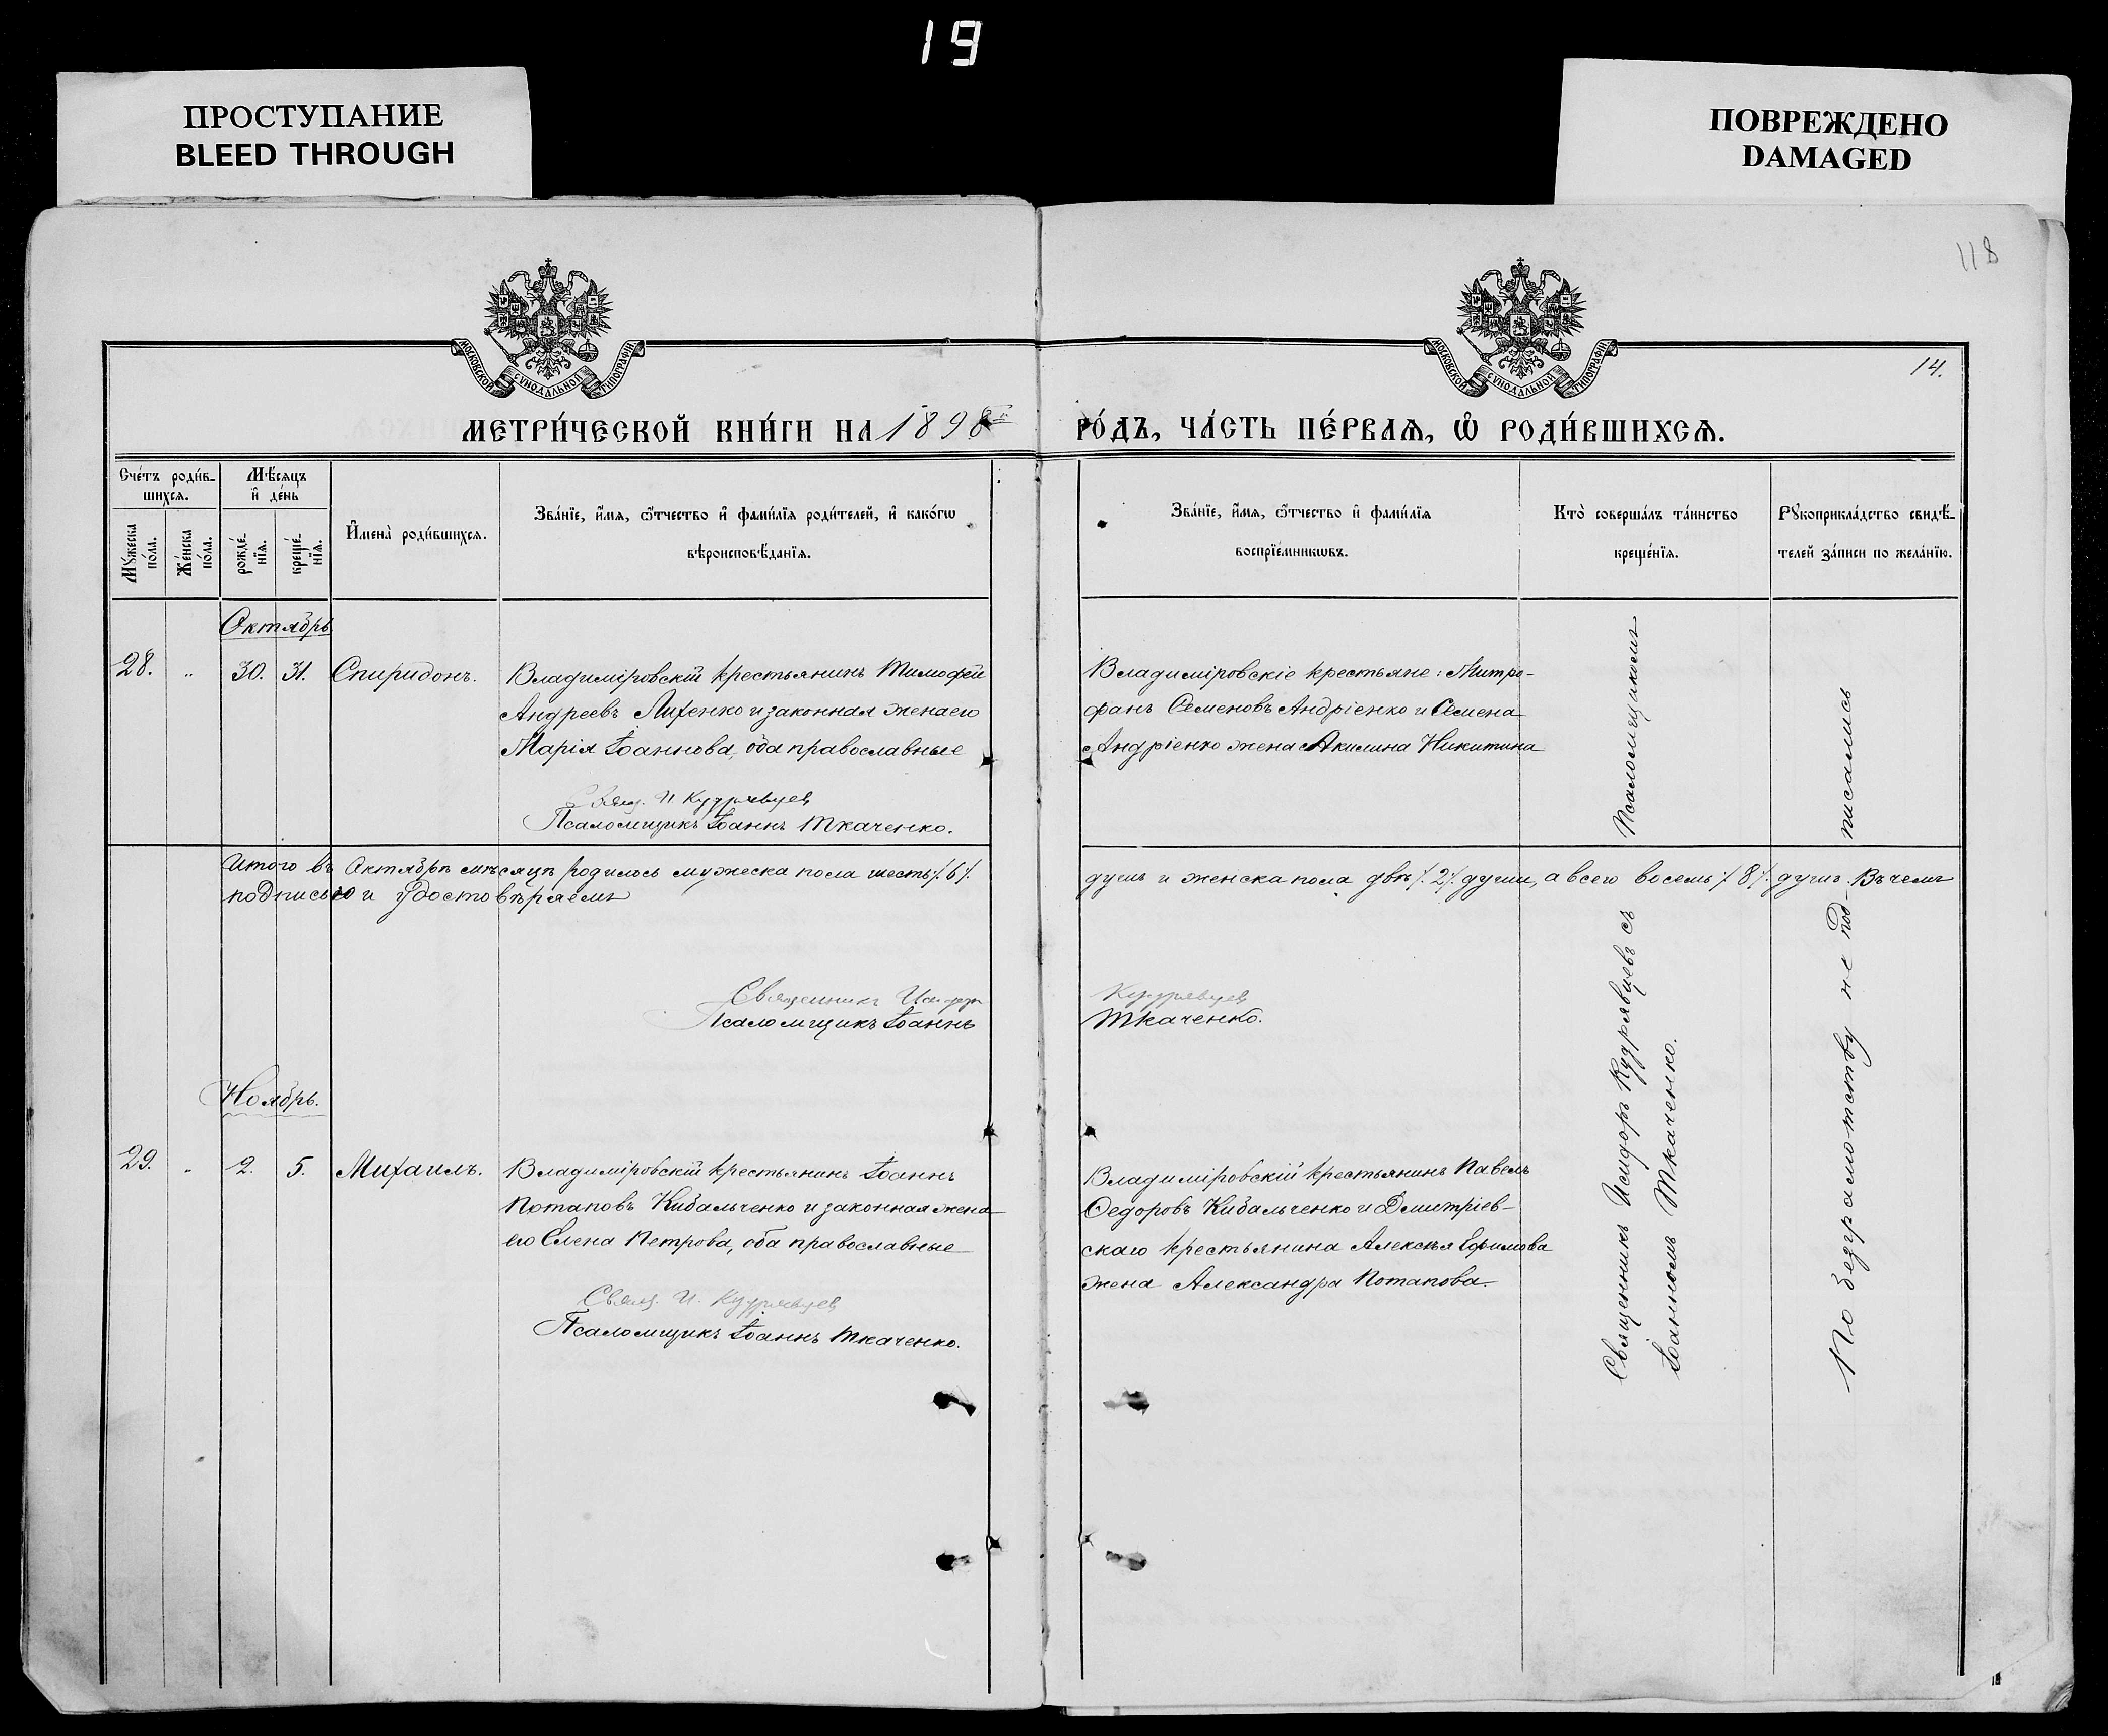 19
ПРОСТУПАНИЕ
BLEED THROUGH
ПОВРЕЖДЕНО
DAMAGED
118
14.
МОСКОВСКОЙ СѴНОДАЛЬНОЙ ТИПОГРАФІИ
МОСКОВСКОЙ СѴНОДАЛЬНОЙ ТИПОГРАФІИ
МЕТРИ́ЧЕСКОЙ КНИ́ГИ НА 1898й
ГО́ДЪ, ЧА́СТЬ ПЕ́РВАѦ, Ѽ РОДИ́ВШИХСѦ.
Сче́тъ роди́в-
шихсѧ.
Мꙋ́жеска
по́ла.
Же́нска
по́ла.
Мѣ́сѧцъ
и҆ де́нь
рожде́-
нїѧ.
креще́-
нїѧ.
И҆мена̀ роди́вшихсѧ.
Зва́нїе, и҆́мѧ, ѻ҆́тчество и҆ фами́лїѧ роди́телей, и҆ како́гѡ
вѣроисповѣ́данїѧ.
Зва́нїе, и҆́мѧ, ѻ҆́тчество и҆ фами́лїѧ
воспрїе́мникѡвъ.
Кто̀ соверша́лъ та́инство
креще́нїѧ.
Рꙋкоприкла́дство свидѣ́-
телей за́писи по жела́нїю.
Октябрь
28. „ 30. 31. Спиридонъ.
Владиміровскій крестьянинъ Тимофей
Андреевъ Лихенко и законная жена его
Марія Іоаннова, оба православные
Свящ. И. Кудрявцев
Псаломщикъ Іоаннъ Ткаченко.
Владиміровскіе крестьяне: Митро-
фанъ Семеновъ Андріенко и Семена
Андріенко жена Акилина Никитина
Итого въ Октябрѣ мѣсяцѣ родилось мужеска пола шесть /.6/. душъ и женска пола двѣ /.2/. души, а всего восемь /.8/. душъ. Въ чемъ
подписью и удостовѣряемъ
Священникъ Исидоръ Кудрявцев
Псаломщикъ Іоаннъ Ткаченко.
Ноябрь.
29. „ 2. 5. Михаилъ.
Владиміровскій крестьянинъ Іоаннъ
Потаповъ Кибальченко и законная жена
его Елена Петрова, оба православные
Свящ. И. Кудрявцев
Псаломщикъ Іоаннъ Ткаченко.
Владиміровскій крестьянинъ Павелъ
Ѳедоровъ Кибальченко и Дмитріев-
скаго крестьянина Алексѣя Ефимова
жена Александра Потапова.
Священникъ Исидоръ Кудрявцевъ съ Псаломщикомъ
Іоанномъ Ткаченко.
По безграмотству не под-писались